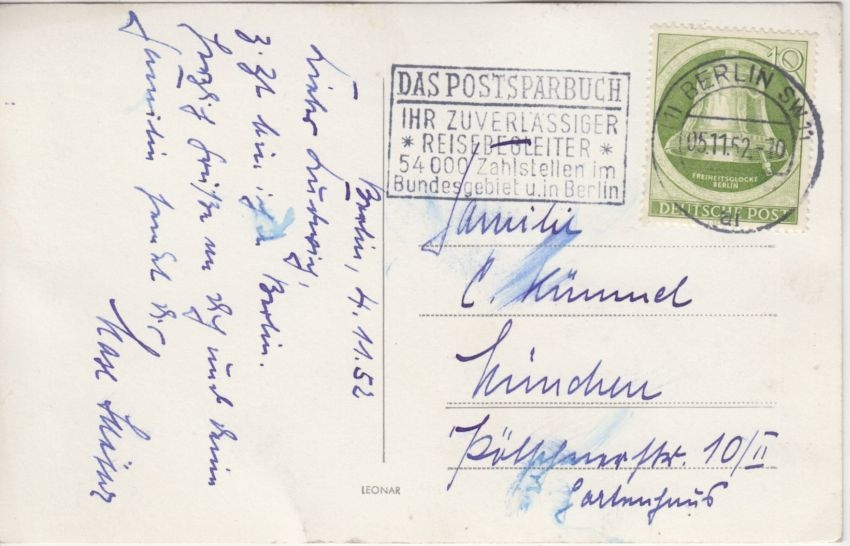 Berlin, 4.11.52
Lieber Ludwig,
z. Zt. bin ich in Berlin.
Herzliche Grüße an Dich und Deine
Familie sendet Dir
Karl
DAS POSTSPARBUCH
IHR ZUVERLÄSSIGER
* REISEBEGLEITER *
54 000 Zahlstellen im
Bundesgebiet u. in Berlin
10
(1) BERLIN SW 11
05.11.52
FREIHEITSGLOCKE
BERLIN
DEUTSCHE POST
Familie
C. Kümmel
München
Pötschnerstr. 10/II
Gartenhaus
LEONAR